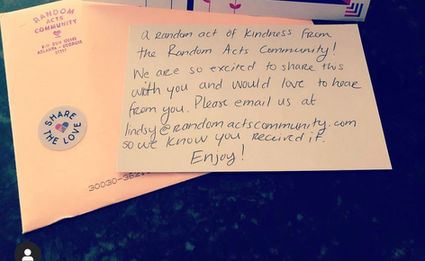 RANDOM
ACTS
COMMUNITY
ATLANTA · GEORGIA
SHARE
THE LOVE
A random act of kindness from
the Random Acts Community!
We are so excited to share this
with you and would love to hear
from you. Please email us at
lindsy@randomactscommunity.com
so we know you received it.
Enjoy!